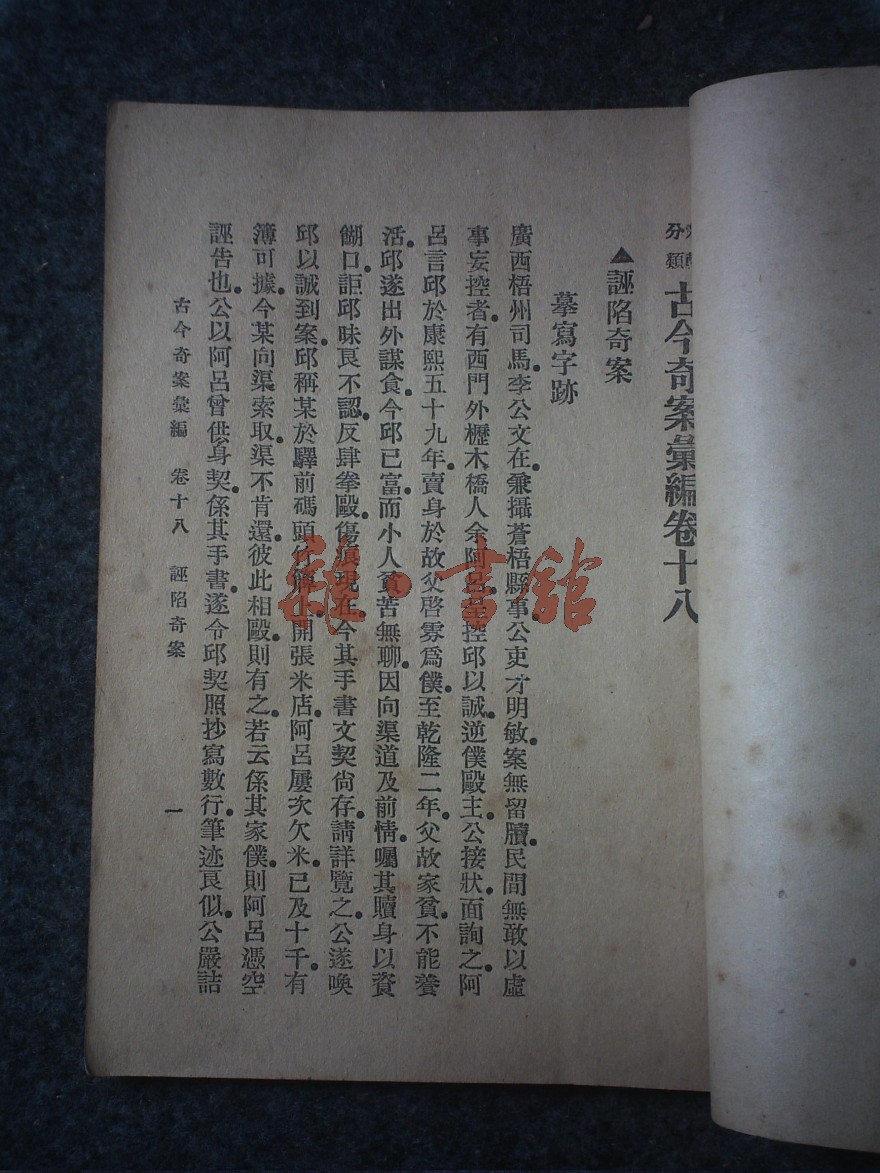 分類 古今奇案彙編卷十八
▲誣陷奇案
摹寫字跡
廣西梧州司馬李公文在兼攝蒼梧縣事公吏才明敏案無留牘民間無敢以虛
事妄控者有西門外櫪木橋人余阿呂呈控邱以誠逆僕毆主公接狀面詢之阿
呂言邱於康熙五十九年賣身於故父啓雰爲僕至乾隆二年父故家貧不能養
活邱遂出外謀食今邱已富而小人貧苦無聊因向渠道及前情囑其贖身以資
餬口詎邱昧良不認反肆拳毆傷痕現在今其手書文契尙存請詳覽之公遂喚
邱以誠到案邱稱某於驛前碼頭上開張米店阿呂屢次欠米已及十千有
簿可據今某向渠索取渠不肯還彼此相毆則有之若云係其家僕則阿呂憑空
誣告也公以阿呂曾供身契係其手書遂令邱契照抄寫數行筆迹良似公嚴詰
古今奇案彙編 卷十八 誣陷奇案 一
雜·書館